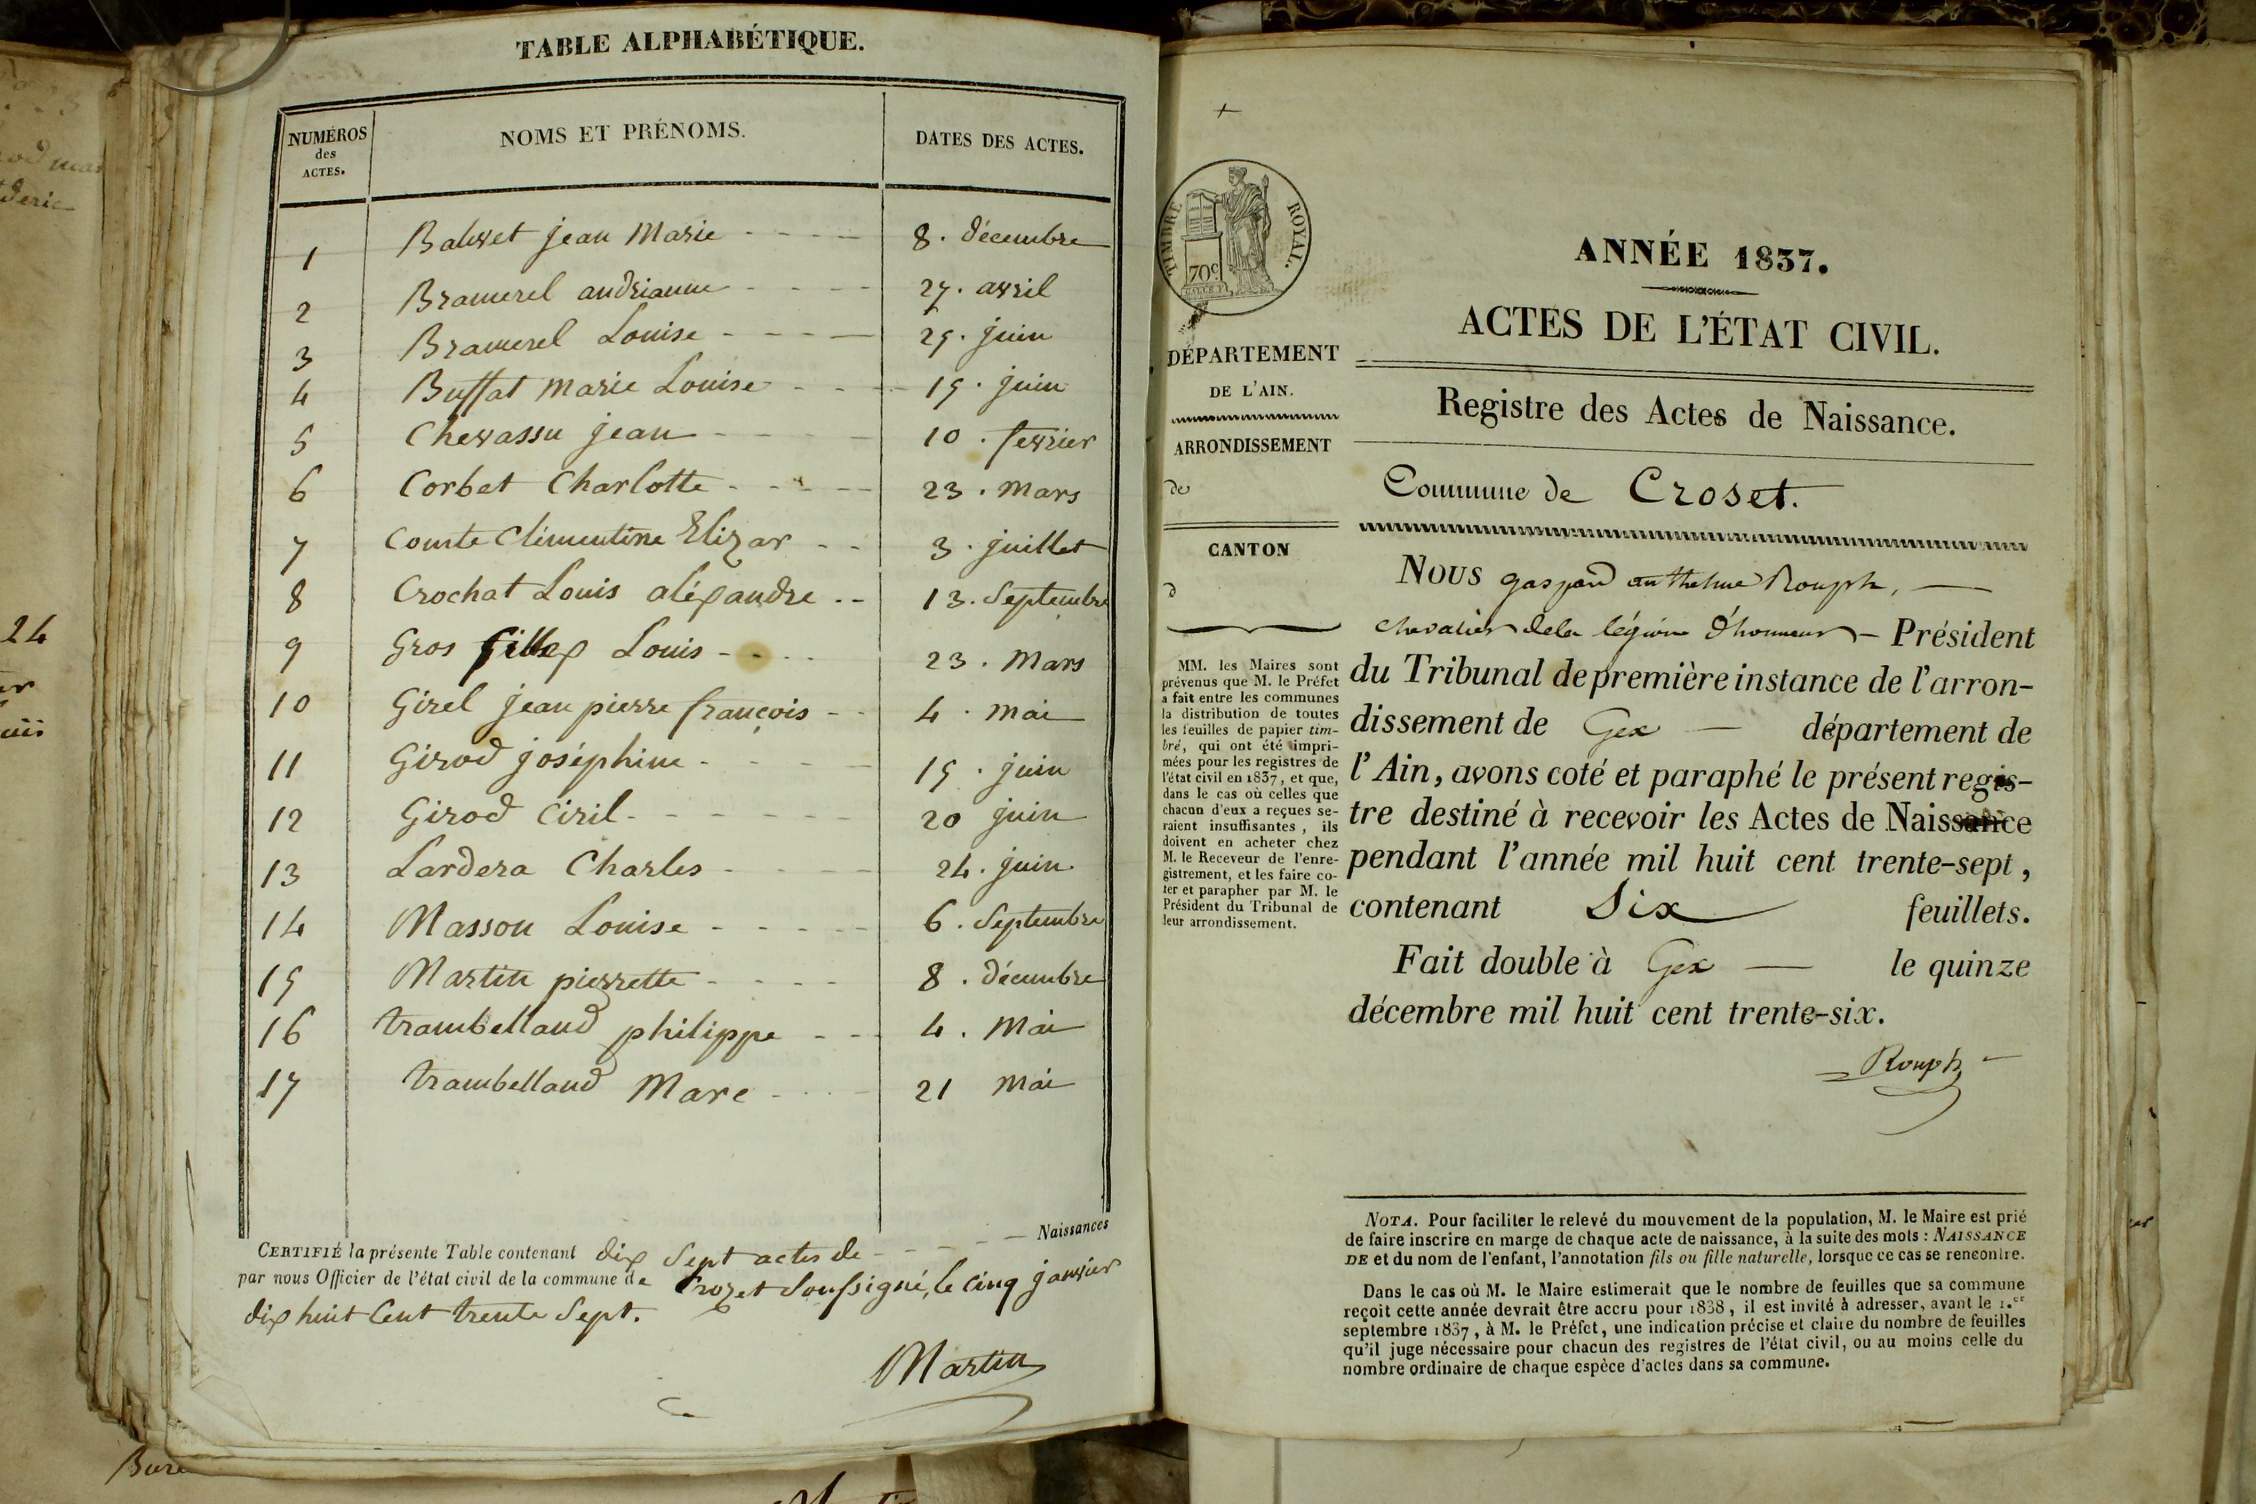 TABLE ALPHABÉTIQUE.
NUMÉROS des ACTES. NOMS ET PRÉNOMS. DATES DES ACTES.
1 Balivet jean Marie 8. décembre
2 Bramerel andrianne 27. avril
3 Bramerel Louise 25. juin
4 Buffat marie Louise 15. juin
5 Chevassu jean 10. fevrier
6 Corbet Charlotte 23. Mars
7 Comte Clémentine Elizar 3. juillet
8 Crochat Louis aléxandre 13. Septembre
9 Gros Louis 23. Mars
10 Girel jean pierre françois 4. mai
11 Girod joséphine 15. juin
12 Girod Ciril 20 juin
13 Lardera Charles 24. juin
14 Masson Louise 6. Septembre
15 Martin pierrette 8. décembre
16 trambelland philippe 4. Mai
17 trambelland Marc 21 Mai
CERTIFIÉ la présente Table contenant dix Sept actes de Naissances
par nous Officier de l'état civil de la commune de Crozet Soussigné, le cinq janvier
dix huit Cent trente Sept.
Martin
TIMBRE ROYAL.
70c
ANNÉE 1837.
ACTES DE L'ÉTAT CIVIL.
Registre des Actes de Naissance.
Commune de Croset.
DÉPARTEMENT
DE L'AIN.
ARRONDISSEMENT
de
CANTON
d
MM. les Maires sont
prévenus que M. le Préfet
a fait entre les communes
la distribution de toutes
les feuilles de papier tim-
bré, qui ont été impri-
mées pour les registres de
l'état civil en 1837, et que,
dans le cas où celles que
chacun d'eux a reçues se-
raient insuffisantes, ils
doivent en acheter chez
M. le Receveur de l'enre-
gistrement, et les faire co-
ter et parapher par M. le
Président du Tribunal de
leur arrondissement.
NOUS gaspard anthelme Rouph,
chevalier de la légion d'honneur Président
du Tribunal de première instance de l'arron-
dissement de Gex département de
l'Ain, avons coté et paraphé le présent regis-
tre destiné à recevoir les Actes de Naissance
pendant l'année mil huit cent trente-sept,
contenant Six feuillets.
Fait double à Gex le quinze
décembre mil huit cent trente-six.
Rouph
NOTA. Pour faciliter le relevé du mouvement de la population, M. le Maire est prié
de faire inscrire en marge de chaque acte de naissance, à la suite des mots : NAISSANCE
DE et du nom de l'enfant, l'annotation fils ou fille naturelle, lorsque ce cas se rencontre.
Dans le cas où M. le Maire estimerait que le nombre de feuilles que sa commune
reçoit cette année devrait être accru pour 1838, il est invité à adresser, avant le 1.er
septembre 1837, à M. le Préfet, une indication précise et claire du nombre de feuilles
qu'il juge nécessaire pour chacun des registres de l'état civil, ou au moins celle du
nombre ordinaire de chaque espèce d'actes dans sa commune.